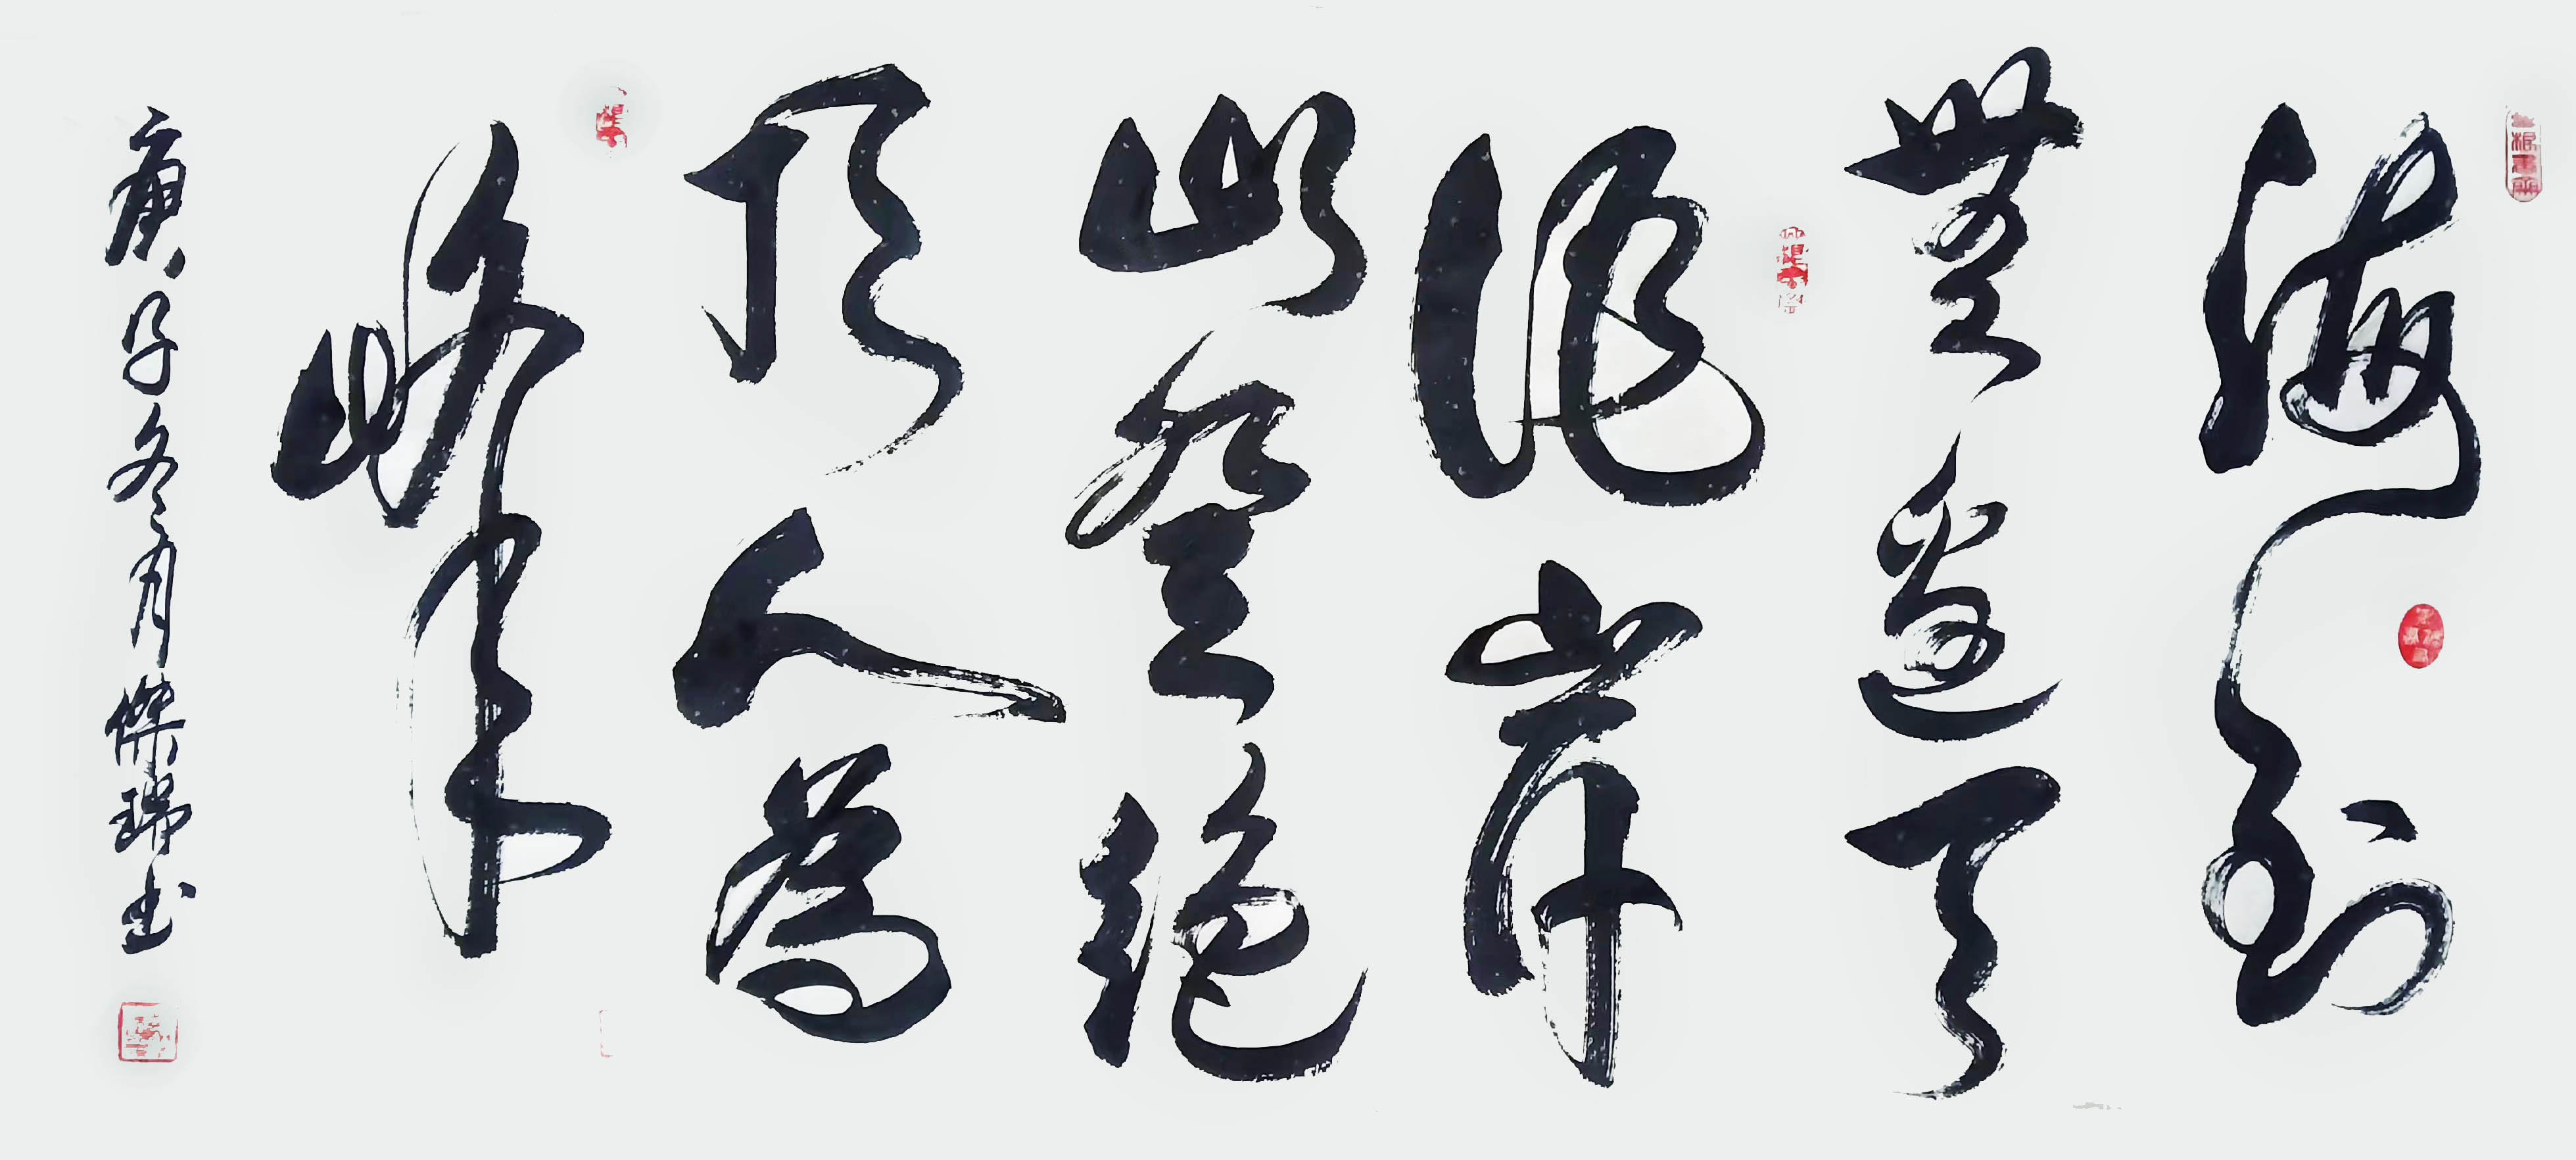 海到
無邊天
作岸
山登絕
頂人為
峰
庚子冬月傑瑞书